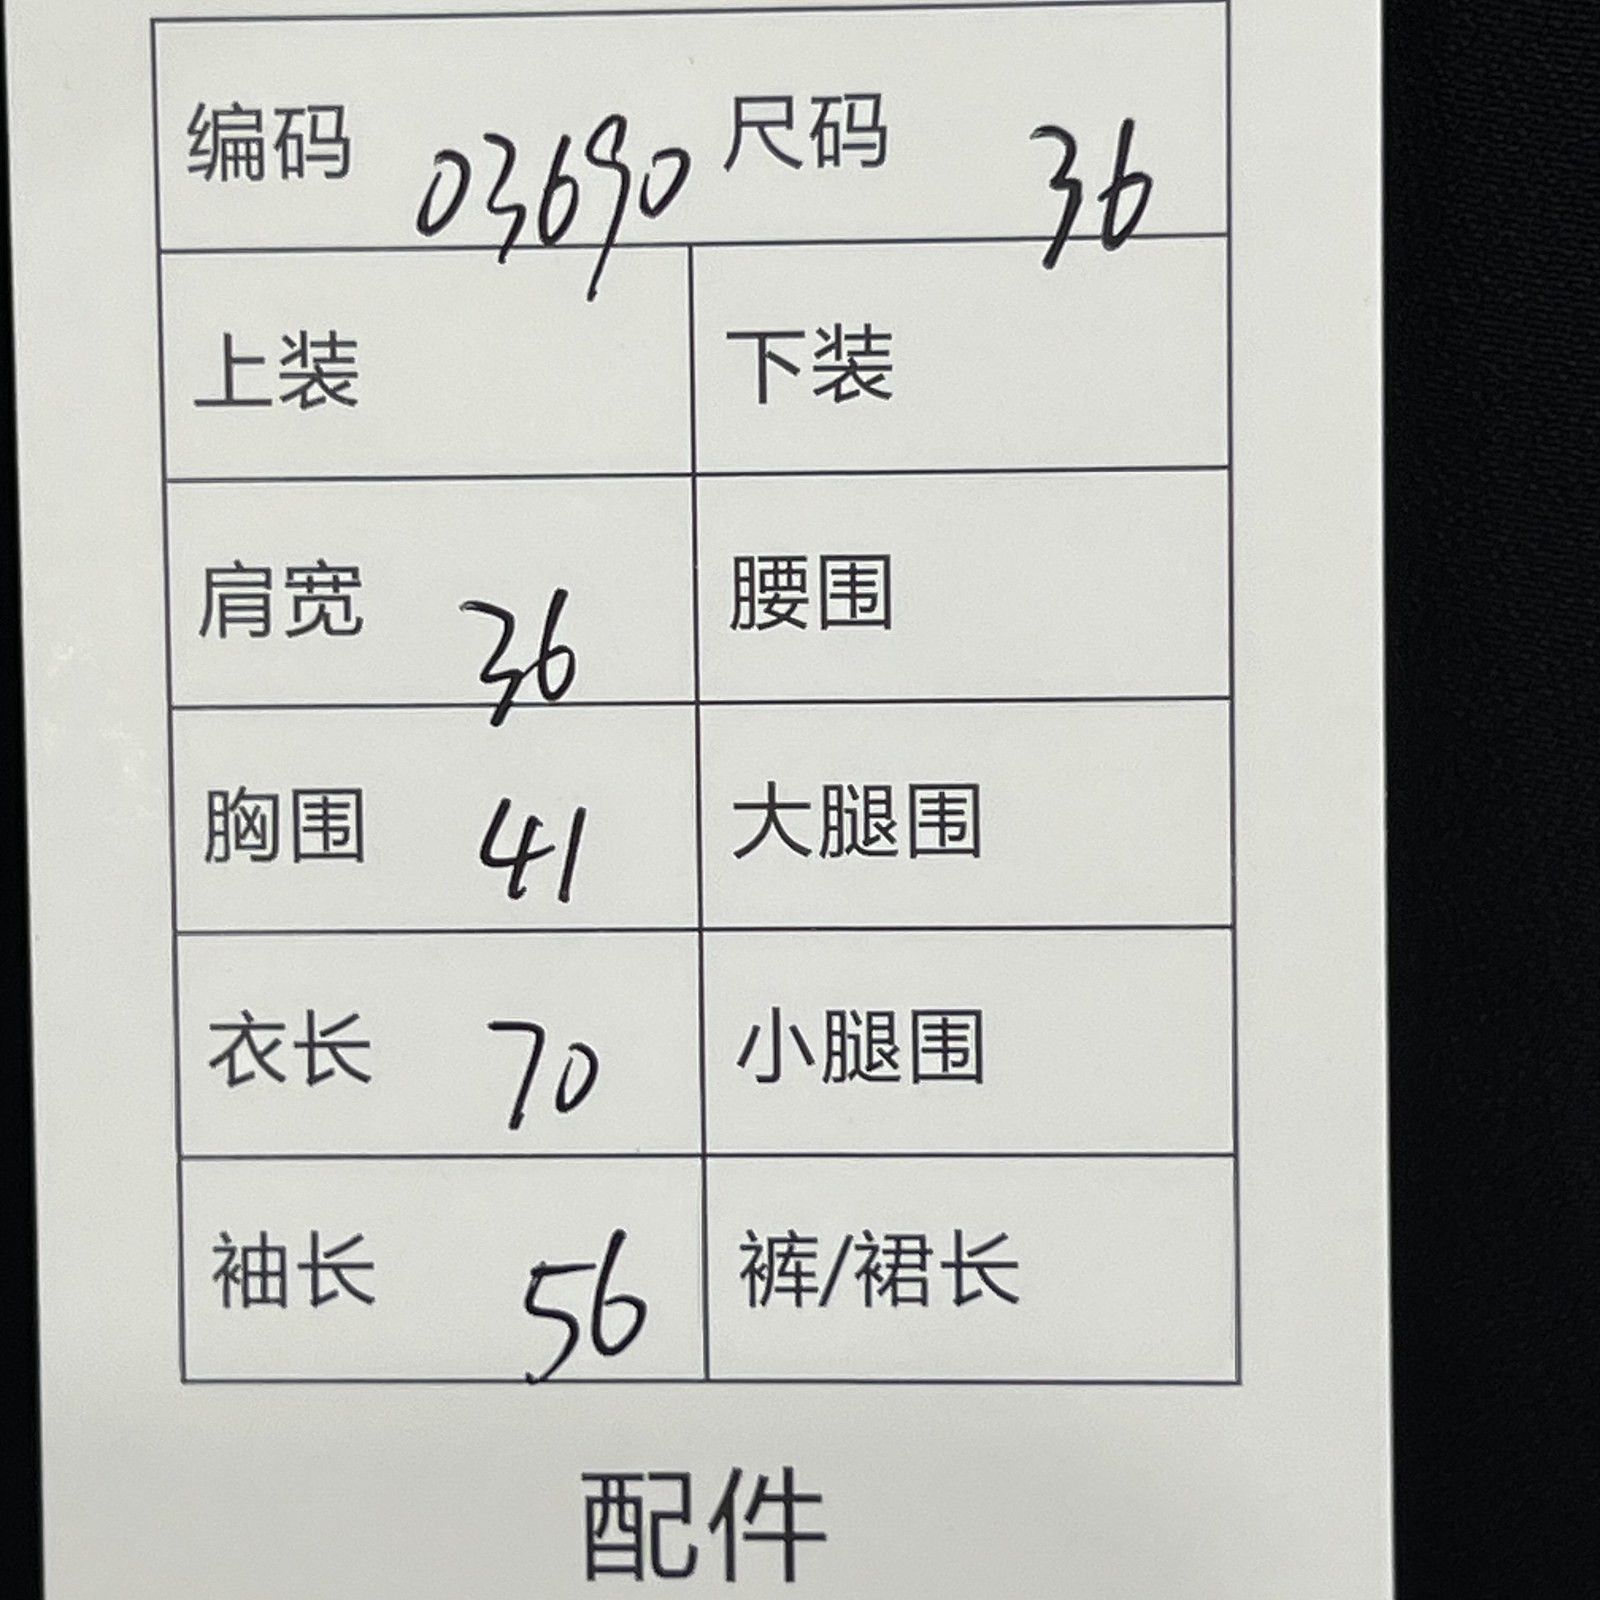 编码 03690 尺码 36
上装 下装
肩宽 36 腰围
胸围 41 大腿围
衣长 70 小腿围
袖长 56 裤/裙长
配件